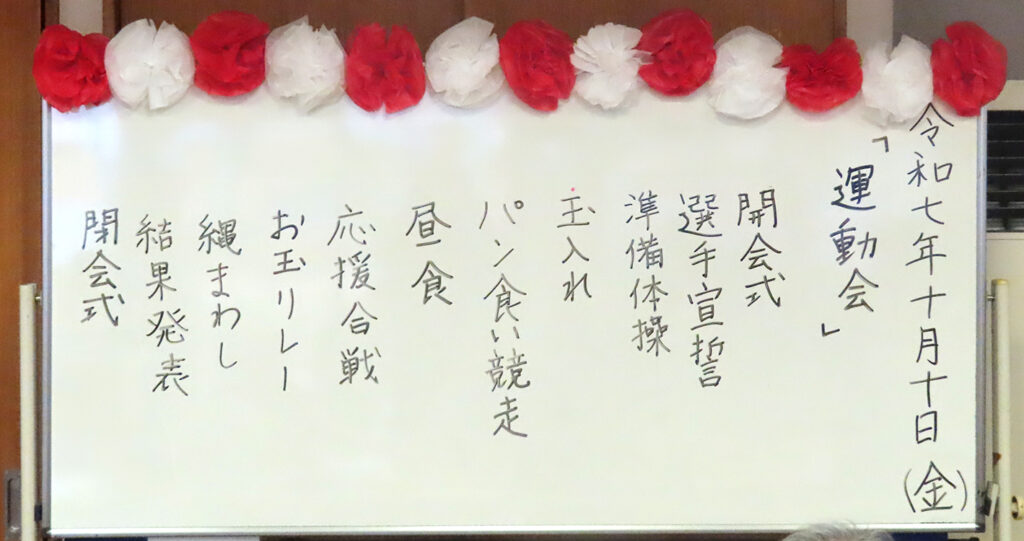 令和七年十月十日(金)
「運動会」
開会式
選手宣誓
準備体操
玉入れ
パン食い競走
昼食
応援合戦
お玉リレー
縄まわし
結果発表
閉会式